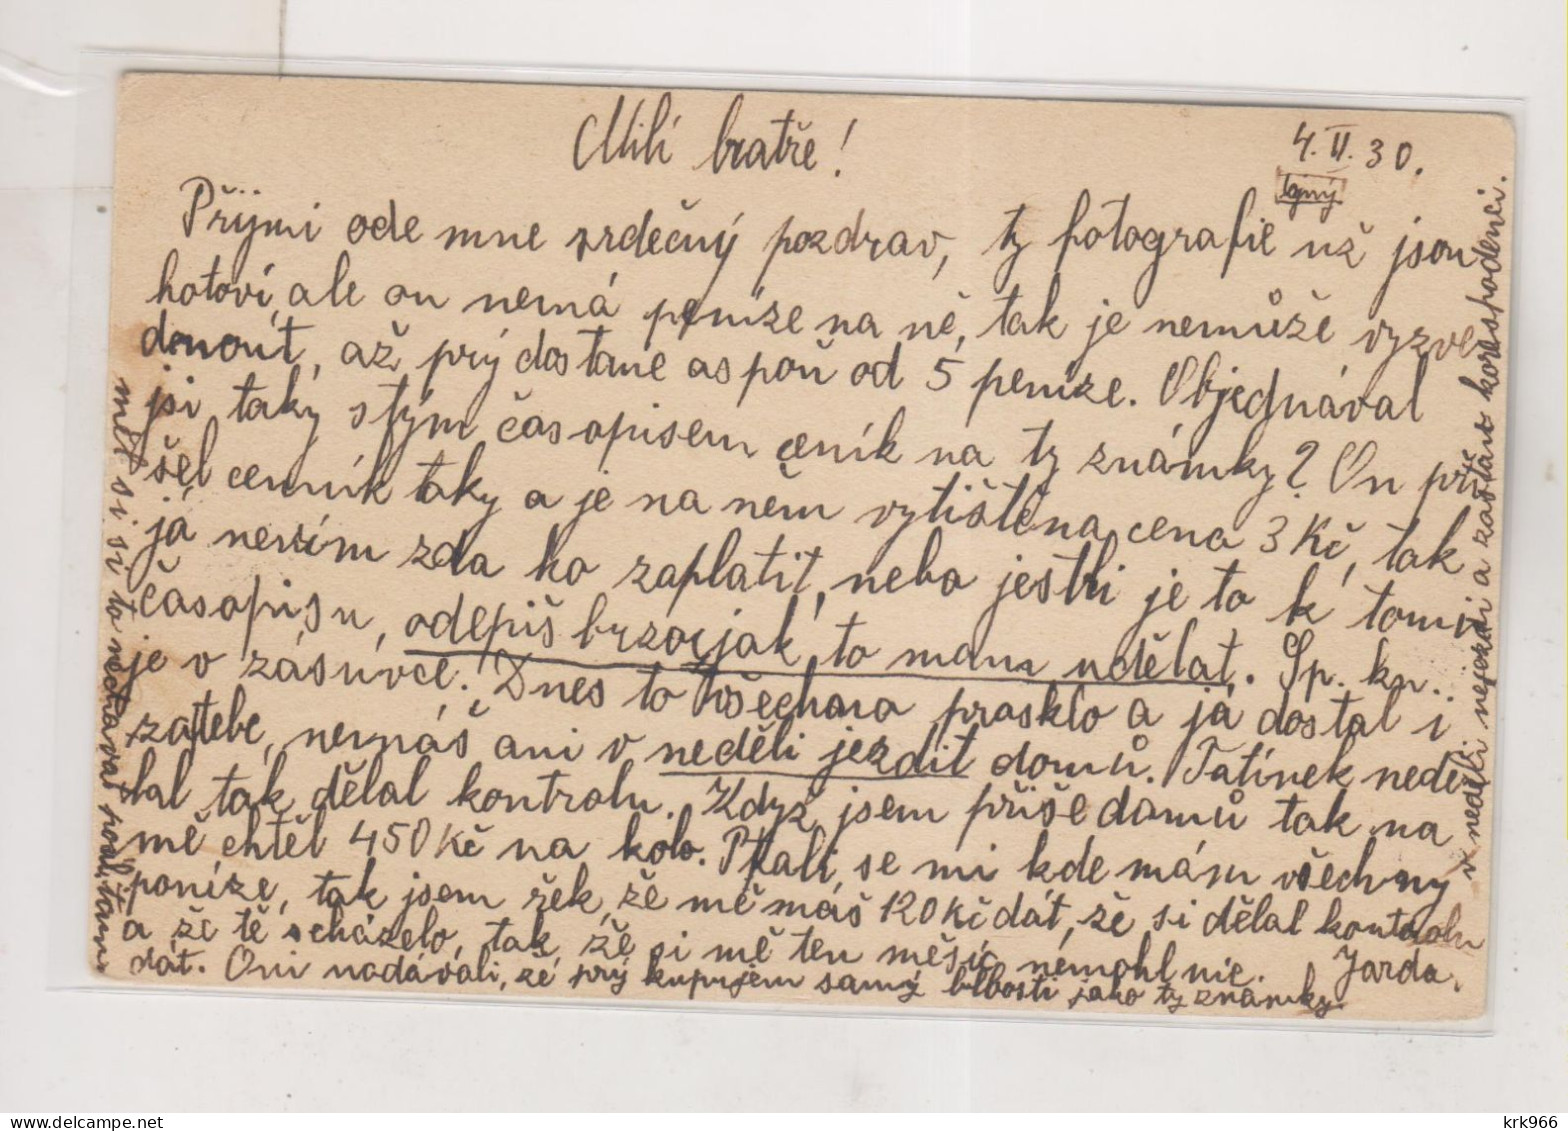 Milí bratře!
4. II. 30.
Přijmi ode mne srdečný pozdrav, ty fotografie už jsou
hotovi, ale on nemá peníze na ně, tak je nemůže vyzve
dnout, až prý dostane aspoň od 5 peníze. Objednával
jsi taky s tým časopisem ceník na ty známky? On při
šel cenník taky a je na něm vytištěna cena 3 Kč, tak
já nevím zda ho zaplatit, nebo jestli je to k tomu
časopisu, odepiš brzo, jak to mam udělat. Sp. kn..
je v zásuvce. Dnes to všechno prasklo a já dostal i
za tebe, nemáš ani v neděli jezdit domů. Tatínek neděl
lal tak dělal kontrolu. Když jsem přiše domů tak na
mě chtěl 450 Kč na kolo. Ptali se mi kde mám všechny
poníze, tak jsem řek, že mě máš 120 Kč dát, že si dělal kontrolu
a že tě scházelo, tak že si mě ten měsíc nemohl nic
dát. Oni nadávali, že prý kupujem samý blbosti jako ty známky.
Jarda.
měl si si to nechávat posílat tam
v neděli nejezdi a zastav korespodenci.
krk966
www.delcampe.net